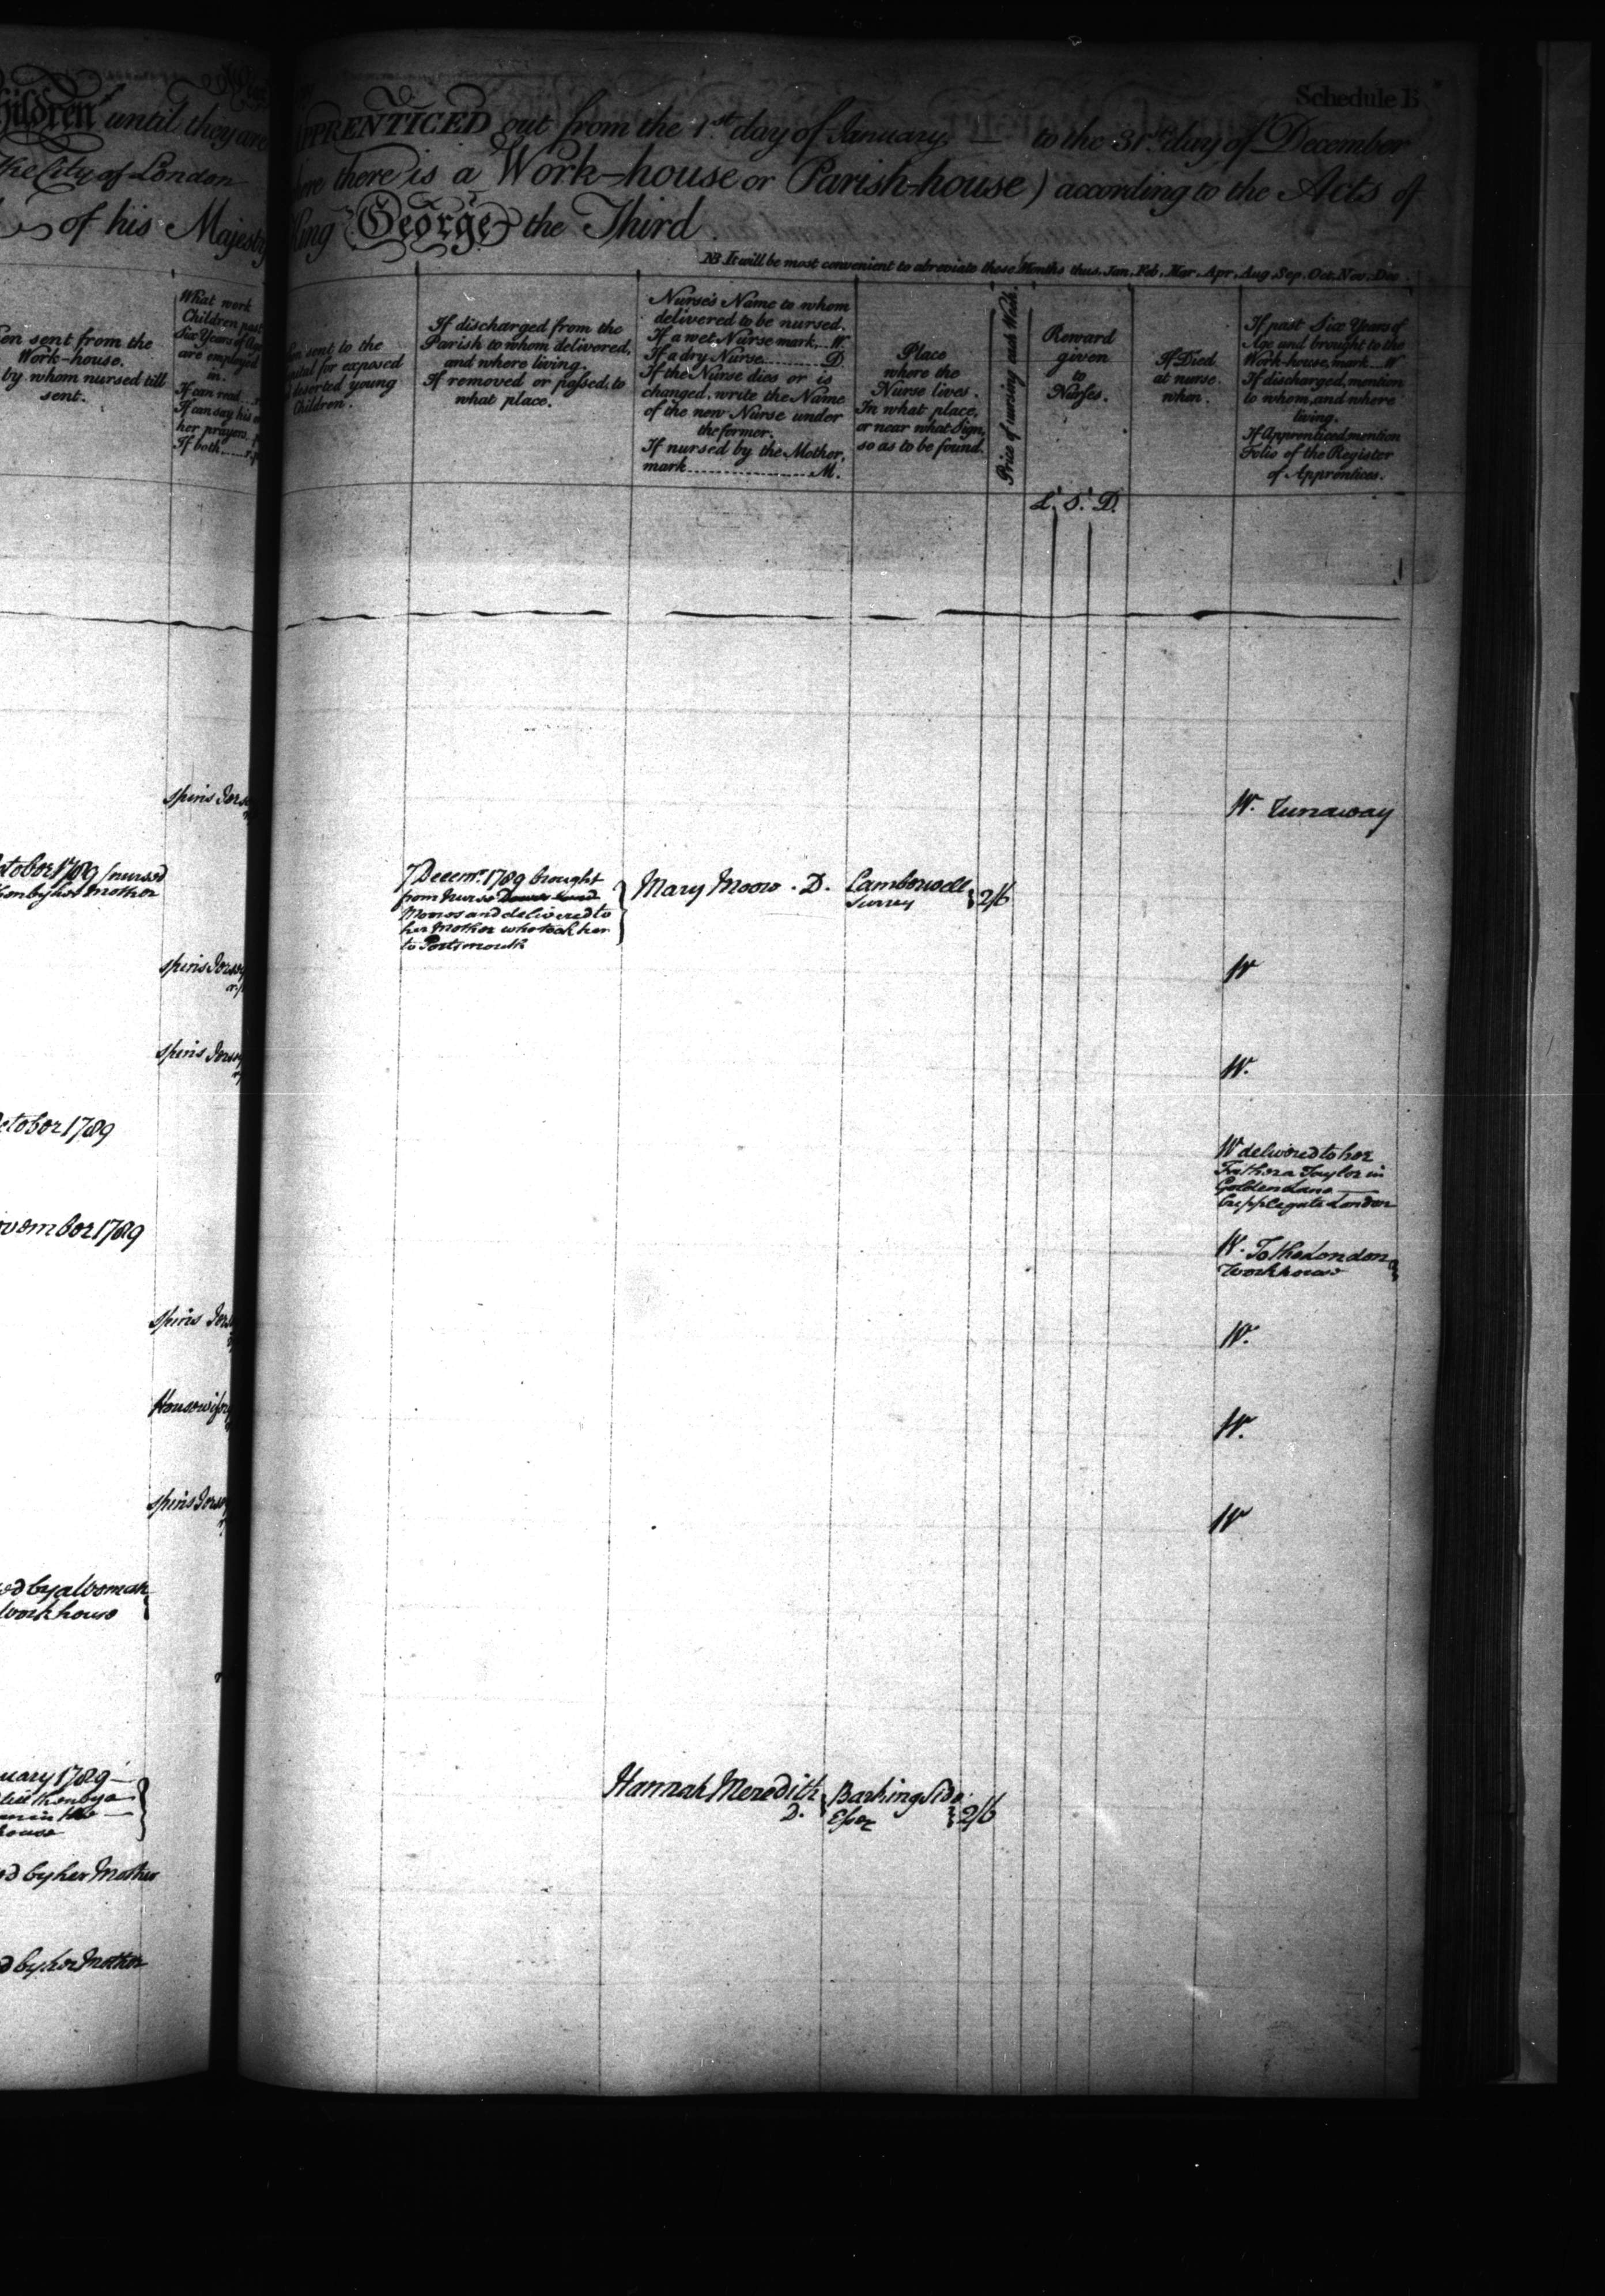 Schedule B
Children until they are
APPRENTICED out from the 1.st day of January — to the 31.st day of December
the City of London
there is a Work-house or Parish-house) according to the Acts of
of his Majesty
King George the Third
NB It will be most convenient to abreviate these Months thus, Jan, Feb, Mar, Apr, Aug, Sep, Oct, Nov, Dec.
sent from the
Work-house.
by whom nursed till
sent.
What work
Children past
Six Years of Age
are employed
in.
If can read
If can say his or
her prayers
If both
sent to the
for exposed
deserted young
Children.
If discharged from the
Parish to whom delivered,
and where living.
If removed or passed, to
what place.
Nurse's Name to whom
delivered to be nursed.
If a wet Nurse mark W.
If a dry Nurse D
If the Nurse dies or is
changed, write the Name
of the new Nurse under
the former.
If nursed by the Mother,
mark M.
Place
where the
Nurse lives.
In what place,
or near what Sign,
so as to be found.
Price of nursing each Week.
Reward
given
to
Nurses.
L. S. D.
If Died
at nurse.
when.
If past Six Years of
Age and brought to the
Work-house, mark W
If discharged, mention
to whom, and where
living.
If Apprenticed, mention
Folio of the Register
of Apprentices.
spins Jersey
W. Runaway
October 1789 (nursed
by her Mother
7 Decemr. 1789 brought
from Nurse
Moores and delivered to
her Mother who took her
to Portsmouth
Mary Moore . D.
Camberwell
Surrey
2/6
spins Jersey
W
spins Jersey
W.
October 1789
W delivered to her
Father a Taylor in
Golden Lane
Cripplegate London
November 1789
W. To the London
Workhouse
spins Jersey
W.
Housewifery
W.
spins Jersey
W
by a Woman
Workhouse
January 1789 —
till then by a
in the —
house
Hannah Meredith
D.
Barking Side
Essex
2/6
by her Mother
by her Mother